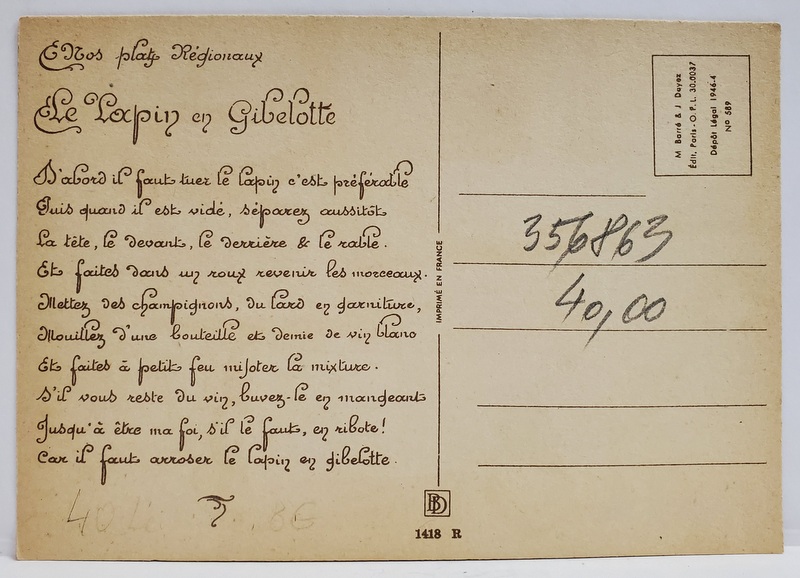 Nos plats Régionaux
Le Lapin en Gibelotte
D'abord il faut tuer le lapin c'est préférable
Puis quand il est vidé, séparez aussitôt
La tête, le devant, le derrière & le rable.
Et faites dans un roux revenir les morceaux.
Mettez des champignons, du lard en garniture,
Mouillez d'une bouteille et demie de vin blanc
Et faites à petit feu mijoter la mixture.
S'il vous reste du vin, buvez-le en mangeant
Jusqu'à être ma foi, s'il le faut, en ribote!
Car il faut arroser le lapin en gibelotte.
IMPRIMÉ EN FRANCE
BD
1418 R
M Barré & J Dayez
Édit. Paris - O.P.L. 30.0037
Dépôt Légal 1946-4
No 589
356863
40,00